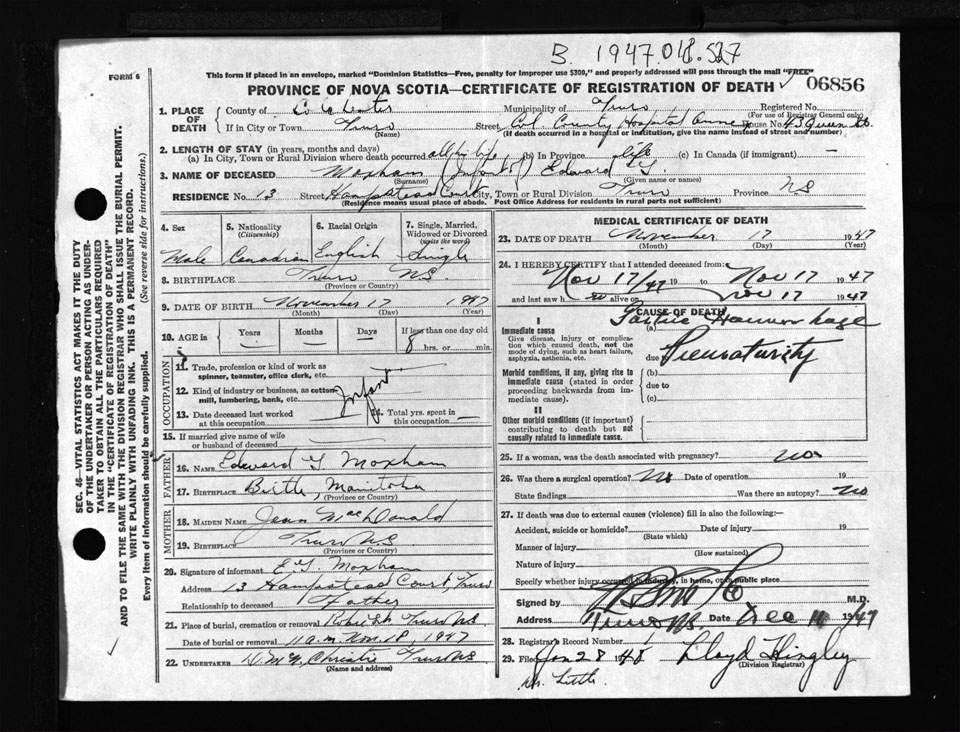 B. 1947.018.527
FORM 6
This form if placed in an envelope, marked "Dominion Statistics—Free, penalty for improper use $300," and properly addressed will pass through the mail "FREE"
PROVINCE OF NOVA SCOTIA—CERTIFICATE OF REGISTRATION OF DEATH 06856
1. PLACE OF DEATH
County of Colchester Municipality of Truro Registered No.
(For use of Registrar General only)
If in City or Town Truro Street Col. County Hospital Annex House No. 43 Queen St.
(Name) (If death occurred in a hospital or institution, give the name instead of street and number)
2. LENGTH OF STAY (in years, months and days)
(a) In City, Town or Rural Division where death occurred all his life (b) In Province life (c) In Canada (if immigrant) —
3. NAME OF DECEASED Moxham (Infant of) Edward G.
(Surname) (Given name or names)
RESIDENCE No. 13 Street Hampstead Court City, Town or Rural Division Truro Province NS
(Residence means usual place of abode. Post Office Address for residents in rural parts not sufficient)
4. Sex 5. Nationality (Citizenship) 6. Racial Origin 7. Single, Married, Widowed or Divorced (write the word)
Male Canadian English Single
8. BIRTHPLACE Truro N.S.
(Province or Country)
9. DATE OF BIRTH November 17 1947
(Month) (Day) (Year)
10. AGE in Years Months Days If less than one day old
— — — 8 hrs. or min.
OCCUPATION
11. Trade, profession or kind of work as spinner, teamster, office clerk, etc.
12. Kind of industry or business, as cotton mill, lumbering, bank, etc.
Infant
13. Date deceased last worked at this occupation 14. Total yrs. spent in this occupation —
15. If married give name of wife or husband of deceased
FATHER
16. NAME Edward G. Moxham
17. BIRTHPLACE Birtle, Manitoba
MOTHER
18. MAIDEN NAME Jean MacDonald
19. BIRTHPLACE Truro N.S
(Province or Country)
20. Signature of informant E.G. Moxham
Address 13 Hampstead Court, Truro
Relationship to deceased Father
21. Place of burial, cremation or removal Truro N.S.
Date of burial or removal 11 a.m. Nov. 18, 1947
22. UNDERTAKER Christie Truro N.S
(Name and address)
MEDICAL CERTIFICATE OF DEATH
23. DATE OF DEATH November 17 1947
(Month) (Day) (Year)
24. I HEREBY CERTIFY that I attended deceased from:
Nov 17/47 19 to Nov 17 1947
and last saw h alive on Nov 17 1947
CAUSE OF DEATH
I
Immediate cause (a) Hemorrhage
Give disease, injury or complication which caused death, not the mode of dying, such as heart failure, asphyxia, asthenia, etc.
due Prematurity
Morbid conditions, if any, giving rise to immediate cause (stated in order proceeding backwards from immediate cause).
(b)
due to
(c)
II
Other morbid conditions (if important) contributing to death but not causally related to immediate cause.
25. If a woman, was the death associated with pregnancy? no
26. Was there a surgical operation? No Date of operation 19
State findings Was there an autopsy? No
27. If death was due to external causes (violence) fill in also the following:—
Accident, suicide or homicide? Date of injury 19
(State which)
Manner of injury
(How sustained)
Nature of injury
Specify whether injury occurred in industry, in home, or in public place
Signed by M.D.
Address Truro N.S. Date Dec 1947
28. Registrar's Record Number
29. Filed Jan 28 1948 Lloyd Hingley
(Division Registrar)
Little
SEC. 46—VITAL STATISTICS ACT MAKES IT THE DUTY
OF THE UNDERTAKER OR PERSON ACTING AS UNDERTAKER TO OBTAIN ALL THE PARTICULARS REQUIRED
IN THE "CERTIFICATE OF REGISTRATION OF DEATH"
AND TO FILE THE SAME WITH THE DIVISION REGISTRAR WHO SHALL ISSUE THE BURIAL PERMIT.
WRITE PLAINLY WITH UNFADING INK. THIS IS A PERMANENT RECORD.
Every item of information should be carefully supplied. (See reverse side for instructions.)